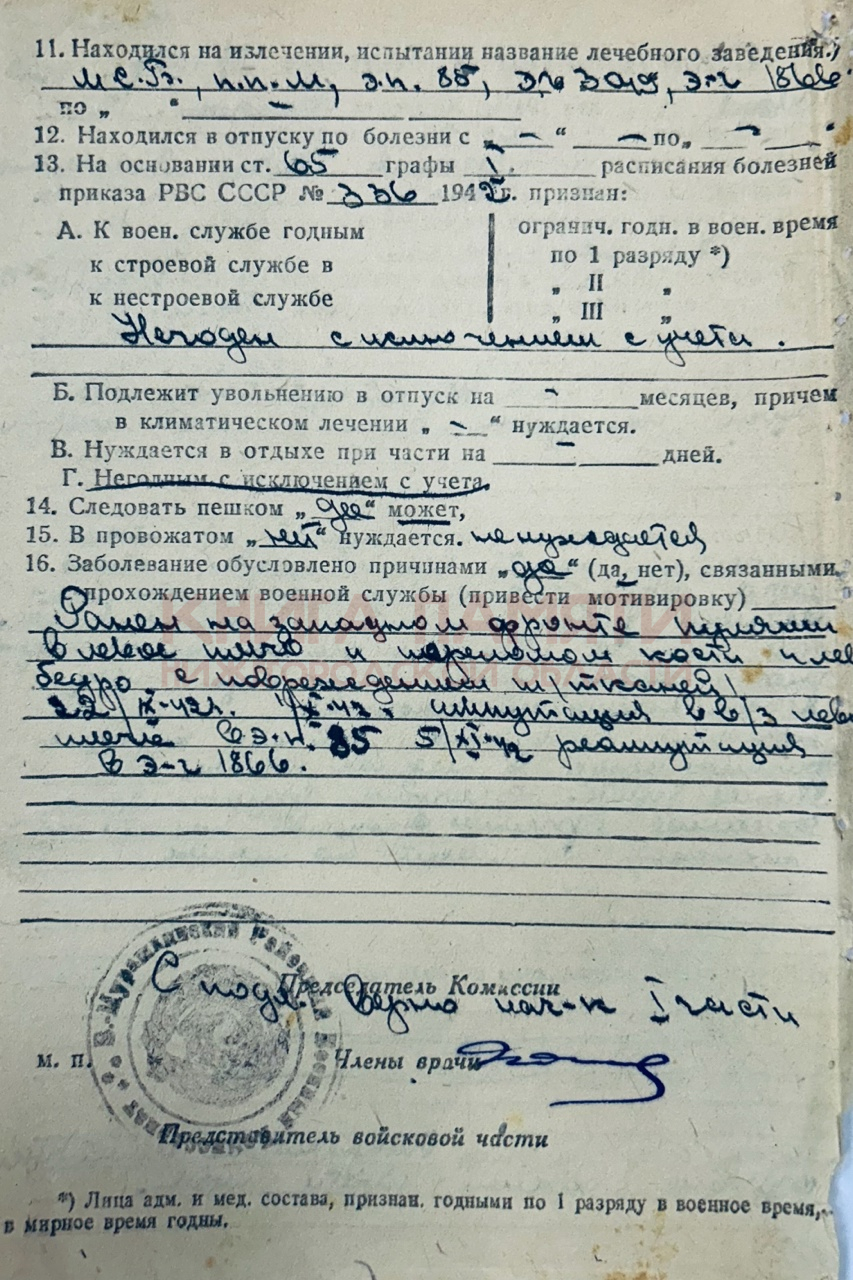 11. Находился на излечении, испытании название лечебного заведения.)
МСБ, п.п.м, э.п. 85, э.г. 3019, э-г 1866
по „ “ –
12. Находился в отпуску по болезни с „ – “ – по „ –
13. На основании ст. 65 графы I. расписания болезней
приказа РВС СССР № 336 1942 г. признан:
А. К воен. службе годным
к строевой службе в
к нестроевой службе
огранич. годн. в воен. время
по 1 разряду *)
„ II „
„ III „
Негоден с исключением с учета.
Б. Подлежит увольнению в отпуск на – месяцев, причем
в климатическом лечении „ – “ нуждается.
В. Нуждается в отдыхе при части на – дней.
Г. Негодным с исключением с учета.
14. Следовать пешком „да“ может,
15. В провожатом „нет“ нуждается. не нуждается
16. Заболевание обусловлено причинами „да“ (да, нет), связанными
прохождением военной службы (привести мотивировку)
КНИГА ПАМЯТИ
НИЖЕГОРОДСКОЙ ОБЛАСТИ
Ранен на западном фронте пулями
в левое плечо и переломом кости и лев
бедро с повреждением м/тканей
22/IX-42г. ампутация в в/3 лево
плеча в э.п. 85 5/XI-42 реампутация
в э-г 1866.
Председатель Комиссии
С подл. верно нач-к I части
Б.-Мурашкинский Районный Военный
м. п.
Члены врачи
Представитель войсковой части
*) Лица адм. и мед. состава, признан. годными по 1 разряду в военное время,
в мирное время годны.